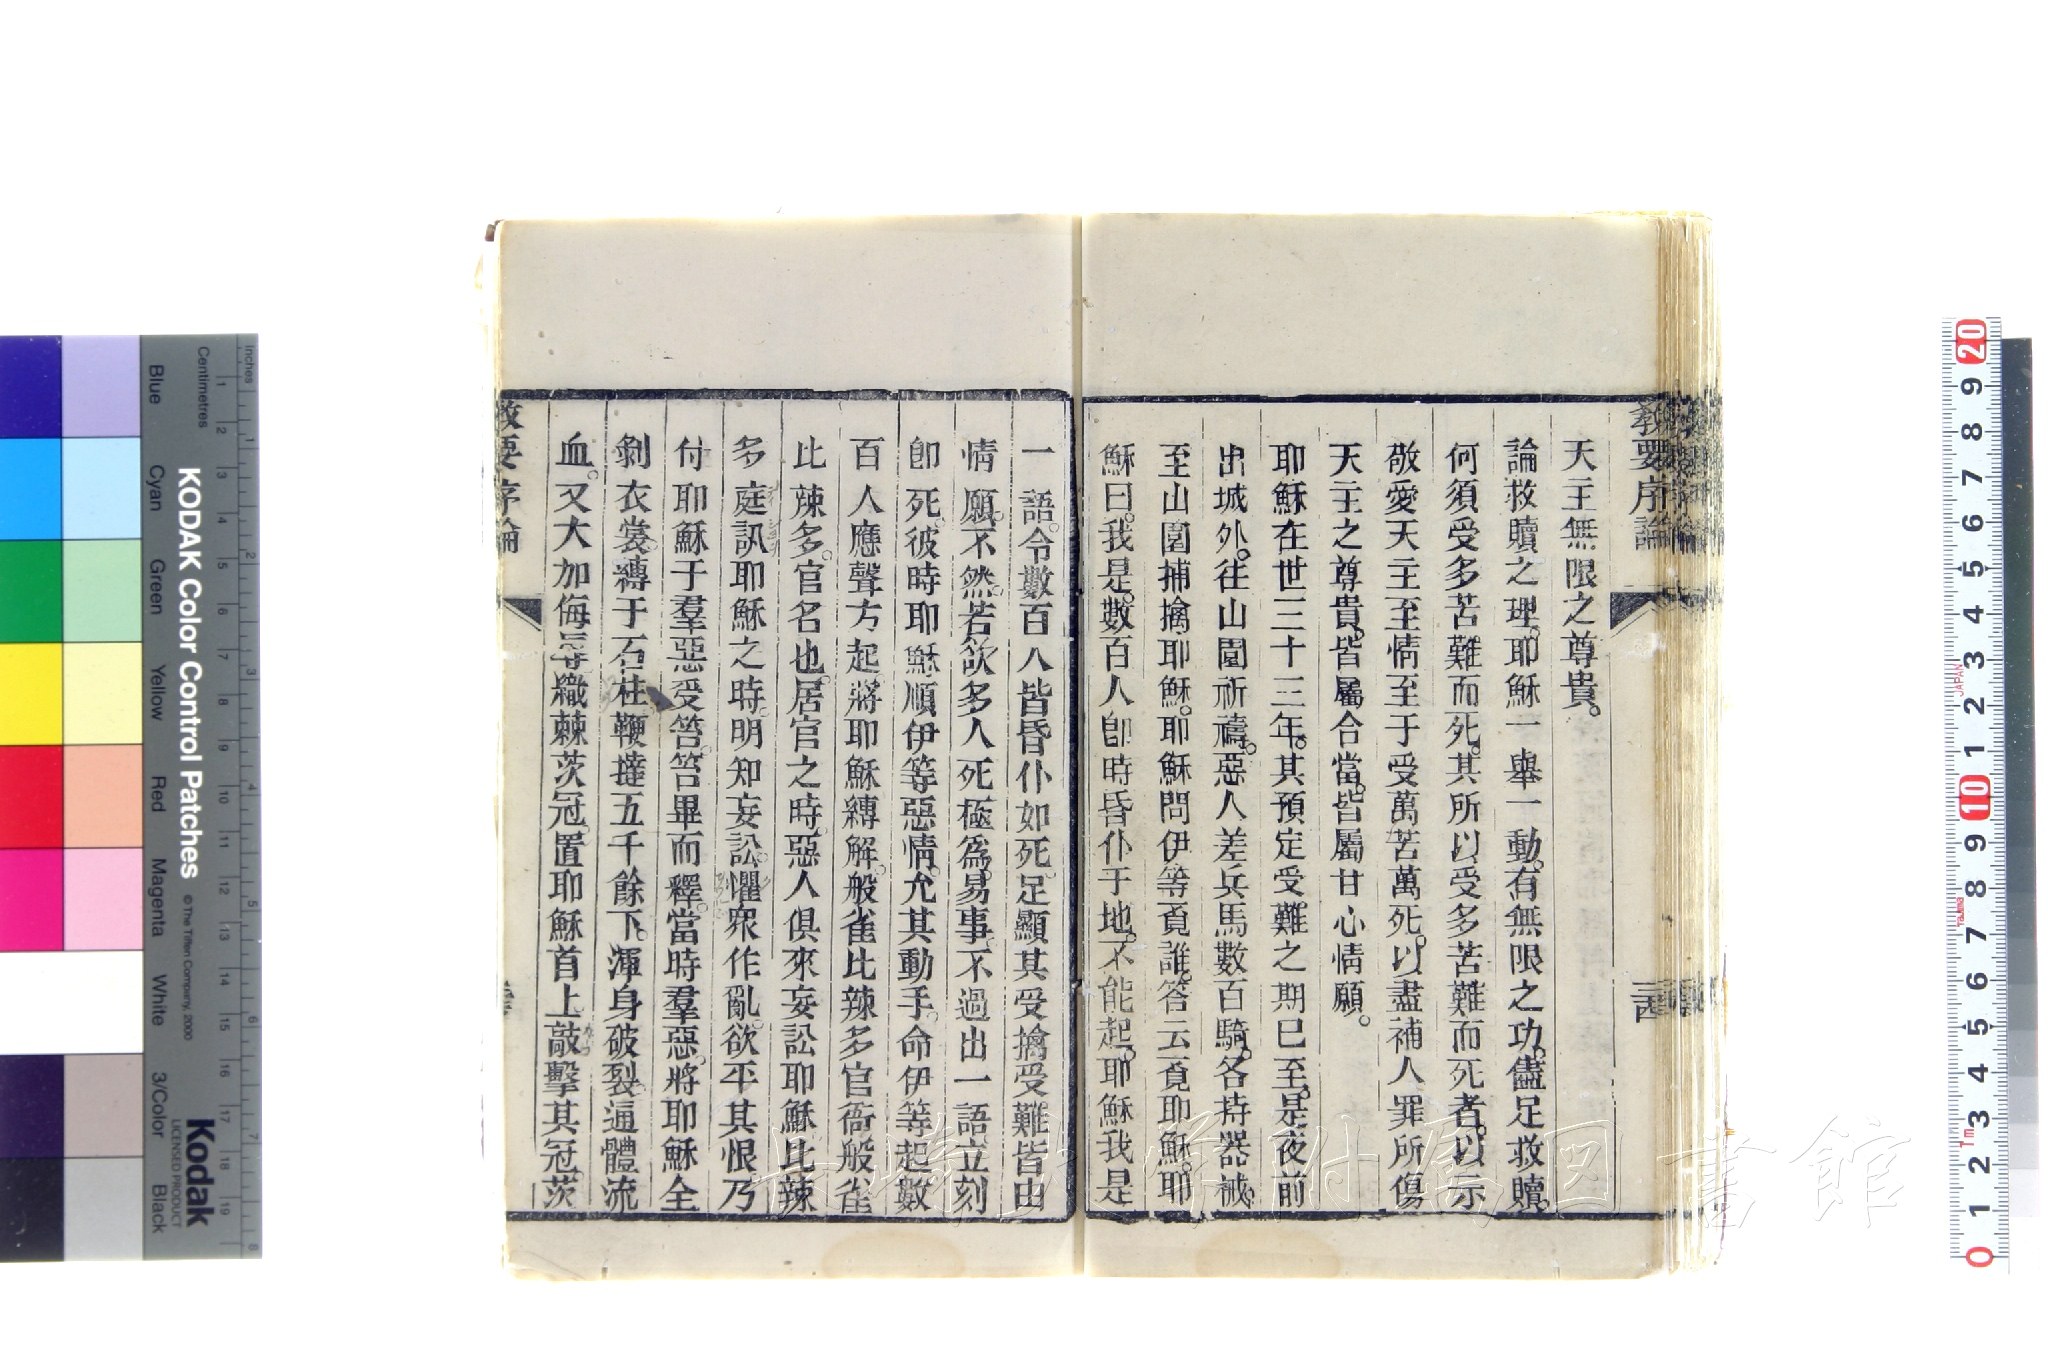 教要序論
三四
天主無限之尊貴。
論救贖之理。耶穌一舉一動。有無限之功。儘足救贖。
何須受多苦難而死。其所以受多苦難而死者。以示
敬愛天主至情至于受萬苦萬死。以盡補人罪所傷
天主之尊貴。皆屬合當。皆屬甘心情願。
耶穌在世三十三年。其預定受難之期已至。是夜前
出城外。往山園祈禱。惡人差兵馬數百騎。各持器械。
至山園捕擒耶穌。耶穌問伊等覓誰。答云覓耶穌。耶
穌曰。我是。數百人卽時昏仆于地。不能起。耶穌我是
一語。令數百人皆昏仆如死。足顯其受擒受難。皆由
情願。不然。若欲多人死極爲易事。不過出一語立刻
卽死。彼時耶穌順伊等惡情。允其動手。命伊等起。數
百人應聲方起。將耶穌縛解。般雀比辣多官衙。般雀
比辣多。官名也。居官之時。惡人俱來妄訟耶穌。比辣
多庭訊耶穌之時。明知妄訟。懼衆作亂。欲平其恨。乃
付耶穌于羣惡受笞。笞畢而釋。當時羣惡。將耶穌全
剝衣裳。縛于石柱。鞭撻五千餘下。渾身破裂。逼體流
血。又大加侮辱。織棘茨冠。置耶穌首上。敲擊其冠。茨
教要序論
KODAK Color Control Patches
© The Tiffen Company, 2000
Kodak
LICENSED PRODUCT
Inches
Centimetres
Blue
Cyan
Green
Yellow
Red
Magenta
White
3/Color
Black
長崎大学附属図書館